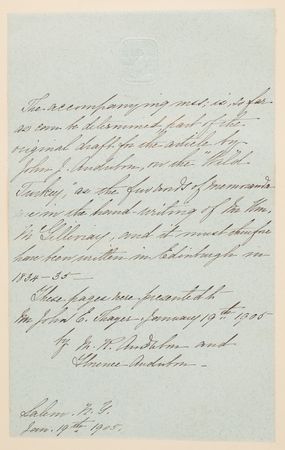 The accompanying mss; is, so far
as can be determined, part of the
original draft for the article by
John J. Audubon, on the "Wild
Turkey," as the few ends of memoranda
is in the hand-writing of Mr Wm.
McGillivray, and it must therefore
have been written in Edinburgh in
1834-35—
These pages were presented to
Mr John E. Thayer January 19th 1905
by M. R. Audubon and
Florence Audubon—
Salem. N. Y.
Jan. 19th 1905.